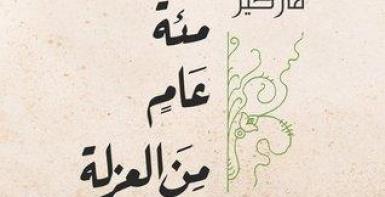 ماركيز
مئة
عَامٍ
مِنَ العزلة